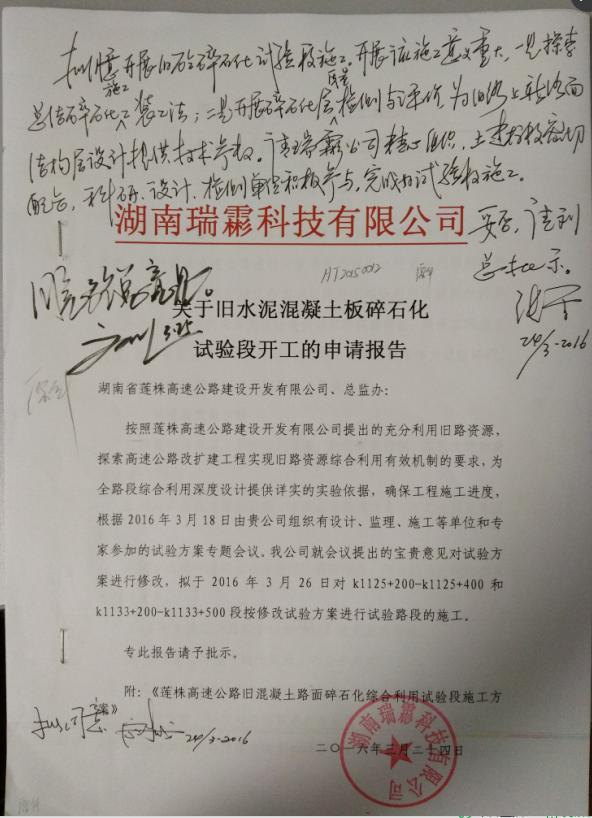 拟同意开展旧砼碎石化试验段施工。开展该施工意义重大，一是探索
施工
总结碎石化工装工法；二是开展碎石化层检测与评价，为旧路上新路面
质量
结构层设计提供技术参数。请瑞霖公司精心组织，土建标段密切
配合，科研、设计、检测单位积极参与，完成好试验段施工。
湖南瑞霖科技有限公司
妥否，请刘
总批示。
HT2015002
24/3-2016
3.25
关于旧水泥混凝土板碎石化
试验段开工的申请报告
湖南省莲株高速公路建设开发有限公司、总监办：
按照莲株高速公路建设开发有限公司提出的充分利用旧路资源，
探索高速公路改扩建工程实现旧路资源综合利用有效机制的要求，为
全路段综合利用深度设计提供详实的实验依据，确保工程施工进度，
根据 2016 年 3 月 18 日由贵公司组织有设计、监理、施工等单位和专
家参加的试验方案专题会议。我公司就会议提出的宝贵意见对试验方
案进行修改，拟于 2016 年 3 月 26 日对 k1125+200-k1125+400 和
k1133+200-k1133+500 段按修改试验方案进行试验路段的施工。
专此报告请予批示。
附：《莲株高速公路旧混凝土路面碎石化综合利用试验段施工方
案》
拟同意
24/3-2016
湖南瑞霖科技有限公司
二〇一六年三月二十四日